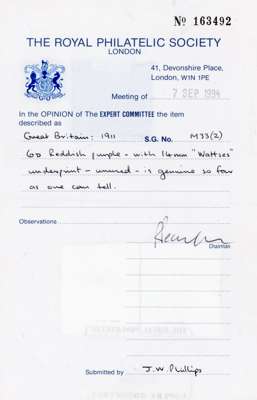 No 163492
THE ROYAL PHILATELIC SOCIETY
LONDON
41, Devonshire Place,
London, W1N 1PE
Meeting of 7 SEP 1994
In the OPINION of The EXPERT COMMITTEE the item
described as
Great Britain: 1911 S.G. No. M33(2)
6D Reddish purple - with 14mm "Watties"
underprint - unused - is genuine so far
as one can tell.
Observations
Chairman
Submitted by J.W. Phillips